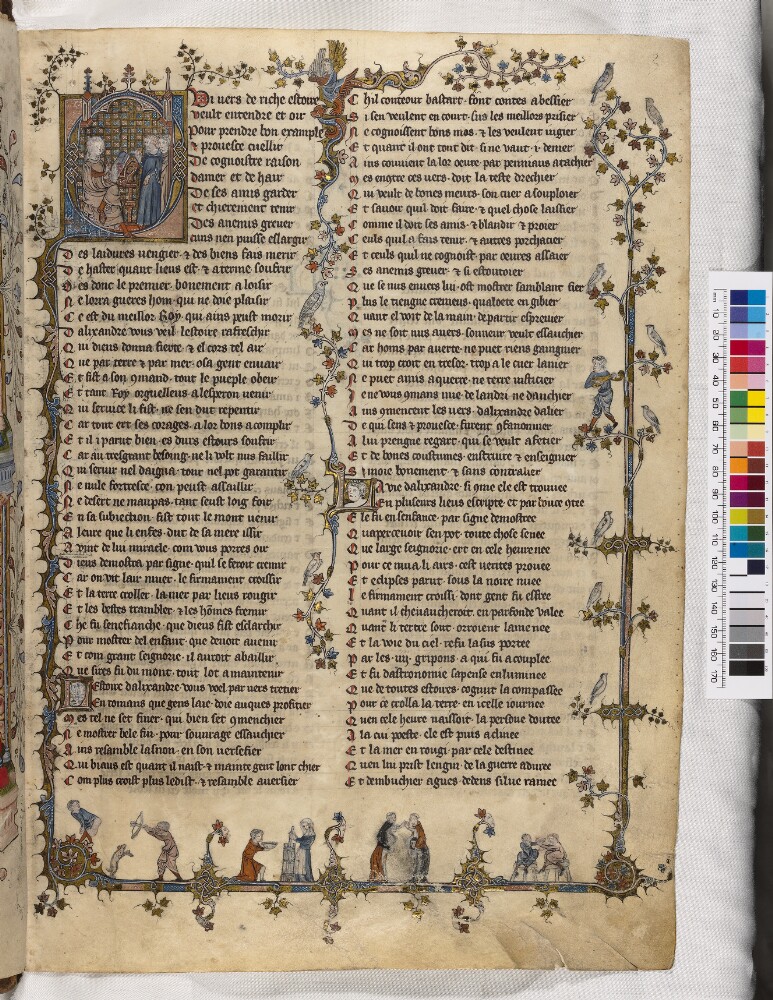 Qui vers de riche estoire
veult entendre et oir
Pour prendre bon example
& prouesce cuellir
De cognoistre raison
damer et de hair
De ses amis garder
et chierement tenir
Des anemis grever
cuns nen puisse eslargir
Des laidures uengier · & des biens fais merir
De haster quant lieus est · & a terme soufrir
donc le premier bonement a loisir
Ne lorra gueres hom · qui ne doie plaisir
Ce est du meillor Roy · qui ains peust morir
Dalixandre vous veil lestoire rafreschir
Qui dieus donna fierte · & el cors bel air
Que par terre & par mer · osa gent enuair
Et fist a son 9mand · tout le pueple obeir
Et tant Roy orguelleus a lesperon uenir
Qui seruice li fist · ne sen dut repentir
Car tout ert ses corages · a lor bons acomplir
Et il i parut bien · es durs estours soufrir
Car au tresgrant besoing · ne le volt nus faillir
Qui seruir nel daigna · tour nel pot garantir
Ne nule fortresce · con peust assaillir
Ne desert ne maupas · tant seust loig fouir
En sa subiection · fist tout le mont uenir
A leure que li enfes · dut de sa mere issir
A vint de lui miracle · com vous porres oir
Dieus demostra par signe · quil se feroit cremir
Car on vit lair muer · le firmament croissir
Et la terre croller · la mer par lieus rougir
Et les bestes trambler · & les hommes fremir
Che fu senefianche · que dieus fist esclarchir
Pour mostrer del enfant · que deuoit auenir
Et com grant seignorie · il auroit abaillir
Que sires fu du mont · tout lot a maintenir
Lestoire dalixandre · vous voel par vers tretier
En romans que gens laie · doie auques profitier
Mes tel ne set finer · qui bien set 9menchier
Ne mostrer bele fin · pour souurage essauchier
Ains resamble lasnon · en son versefier
Qui biaus est quant il naist · & mainte gent lont chier
Com plus croist plus ledist · & resamble auersier
Chil conteour bastart · font contes abessier
Si sen veulent en court · sus les meillors prisier
Ne cognoissent bons mos · & les veulent iugier
Et quant il ont tout dit · si ne vaut · i · denier
Ains couuient la lor oeure · par penniaus atachier
Mes ces vers · doit la teste drechier
Qui veult de bones meurs · son cuer asouploier
Et sauoir quil doit faire · & quel chose laissier
Comme il doit ses amis · & blandir & proier
Ceuls quil a fais tenir · & autres porchacier
Et ceuls quil ne cognoist · par oeures assaier
Ses anemis greuer · & si
Que se nus enuers lui · ost mostrer samblant fier
Plus le tiengne cremeus · qualoete en gibier
Quant el voit de la main · departir espreuier
Mes ne soit nus auers · souneur veult essauchier
Car homs par auerte · ne puet riens gaaignier
Qui trop croit en tresor · trop a le cuer lanier
Ne puet amis aquerre · ne terre iusticier
Ie ne vous 9mans mie · de landri ne dauchier
Ains 9mencent les vers · dalixandre dalier
De qui sens & prouesce · furent 9fanonnier
A lui prengne regart · qui se veult afetier
Et de bones coustumes · enstruire & enseignier
Si moie bonement · & sans contralier
La vie dalixandre · si 9me ele est trouuee
En pluseurs lieus escripte · et par bouce 9tee
Ele fu en senfance · par signe demostree
Quapercenoir sen pot · toute chose senee
Que large seignorie · ert en cele heure nee
Pour ce mua li airs · cest verites prouee
Et eclipses parut · sous la noire nuee
Le firmament croissi · dont gent fu esfree
Quant il cheuaucheroit · en parfonde valee
Quant li tertre sout · orroient la menee
Et la voie du ciel · refu lasus portee
Par les · iiij · gripons · a qui fu acouplee
Et fu dastronomie sapense enluminee
Que de toutes estoires · cognut la compassee
Pour ce crolla la terre · en icelle iournee
Quen cele heure naissoit · la persone doutee
A la cui poeste · ele est puis aclinee
Et la mer en rougi · par cele destinee
Quen lui prist lengin · de la guerre aduree
Et dembuchier agues · dedens silue ramee